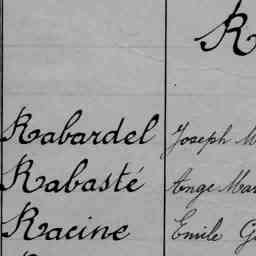 R
Rabardel Joseph M
Rabasté Ange Mar
Racine Emile G